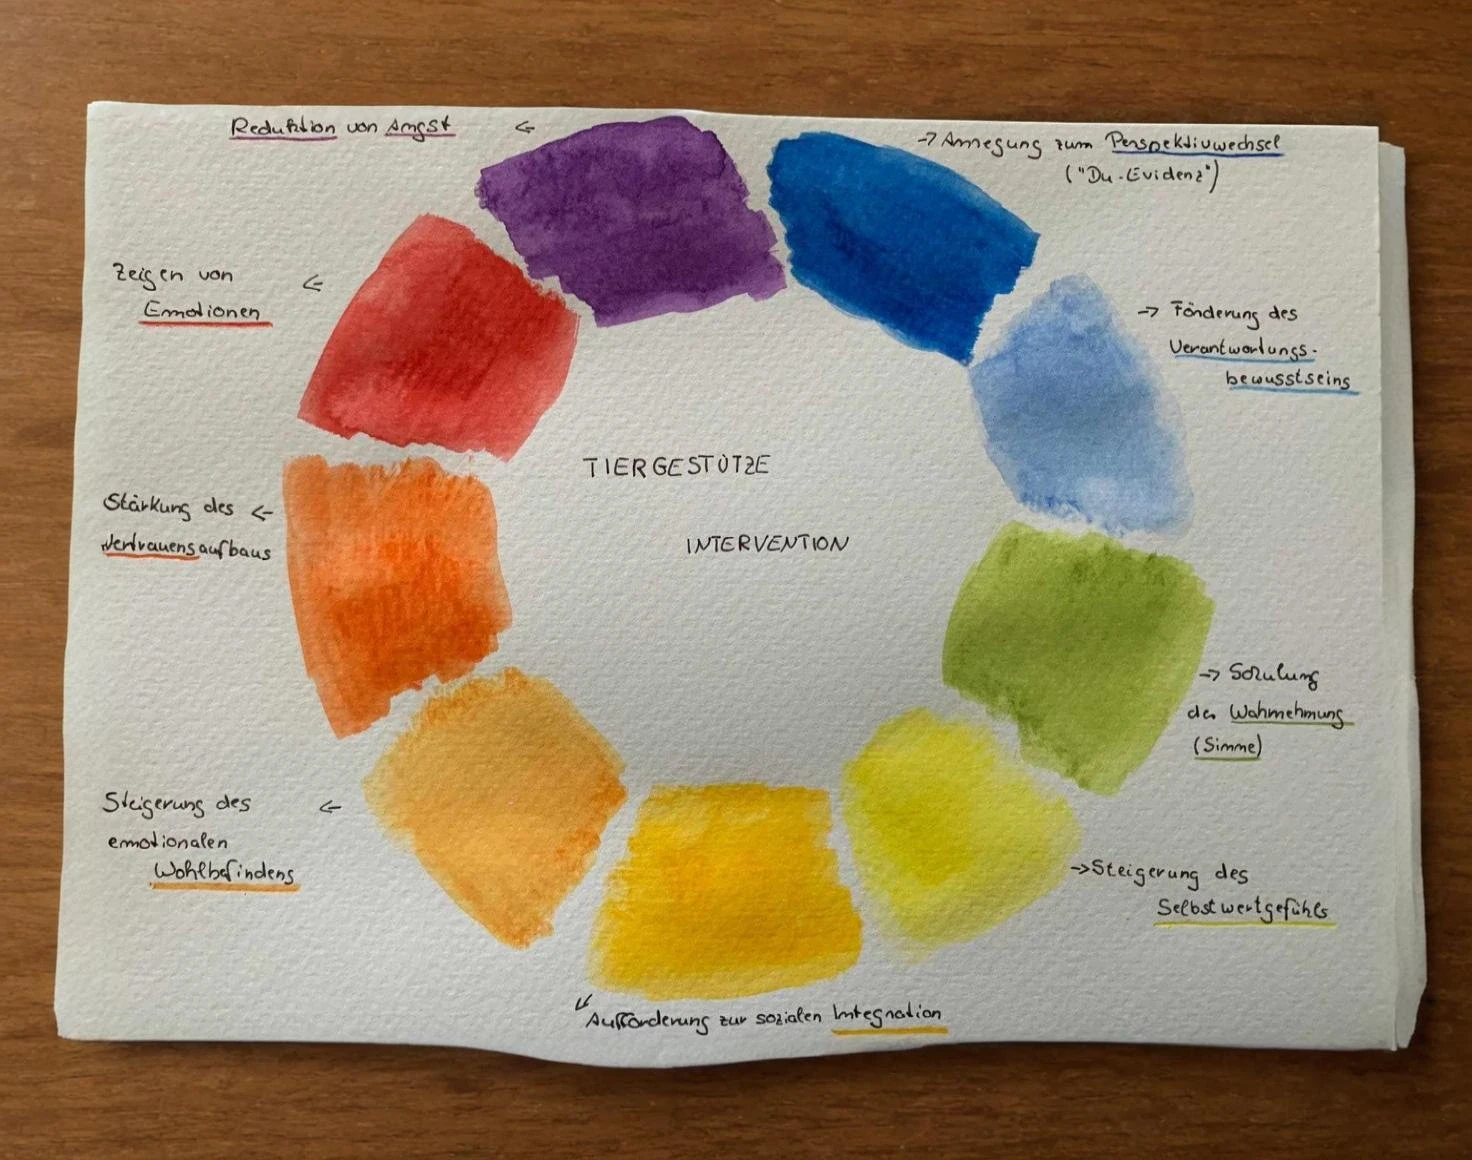 Reduktion von Angst
→ Anregung zum Perspektivwechsel
("Du-Evidenz")
Zeigen von
Emotionen
→ Förderung des
Verantwortungs-
bewusstseins
TIERGESTÜTZE
INTERVENTION
Stärkung des
Vertrauensaufbaus
→ Schulung
der Wahrnehmung
(Sinne)
Steigerung des
emotionalen
Wohlbefindens
→ Steigerung des
Selbstwertgefühls
Aufforderung zur sozialen Integration